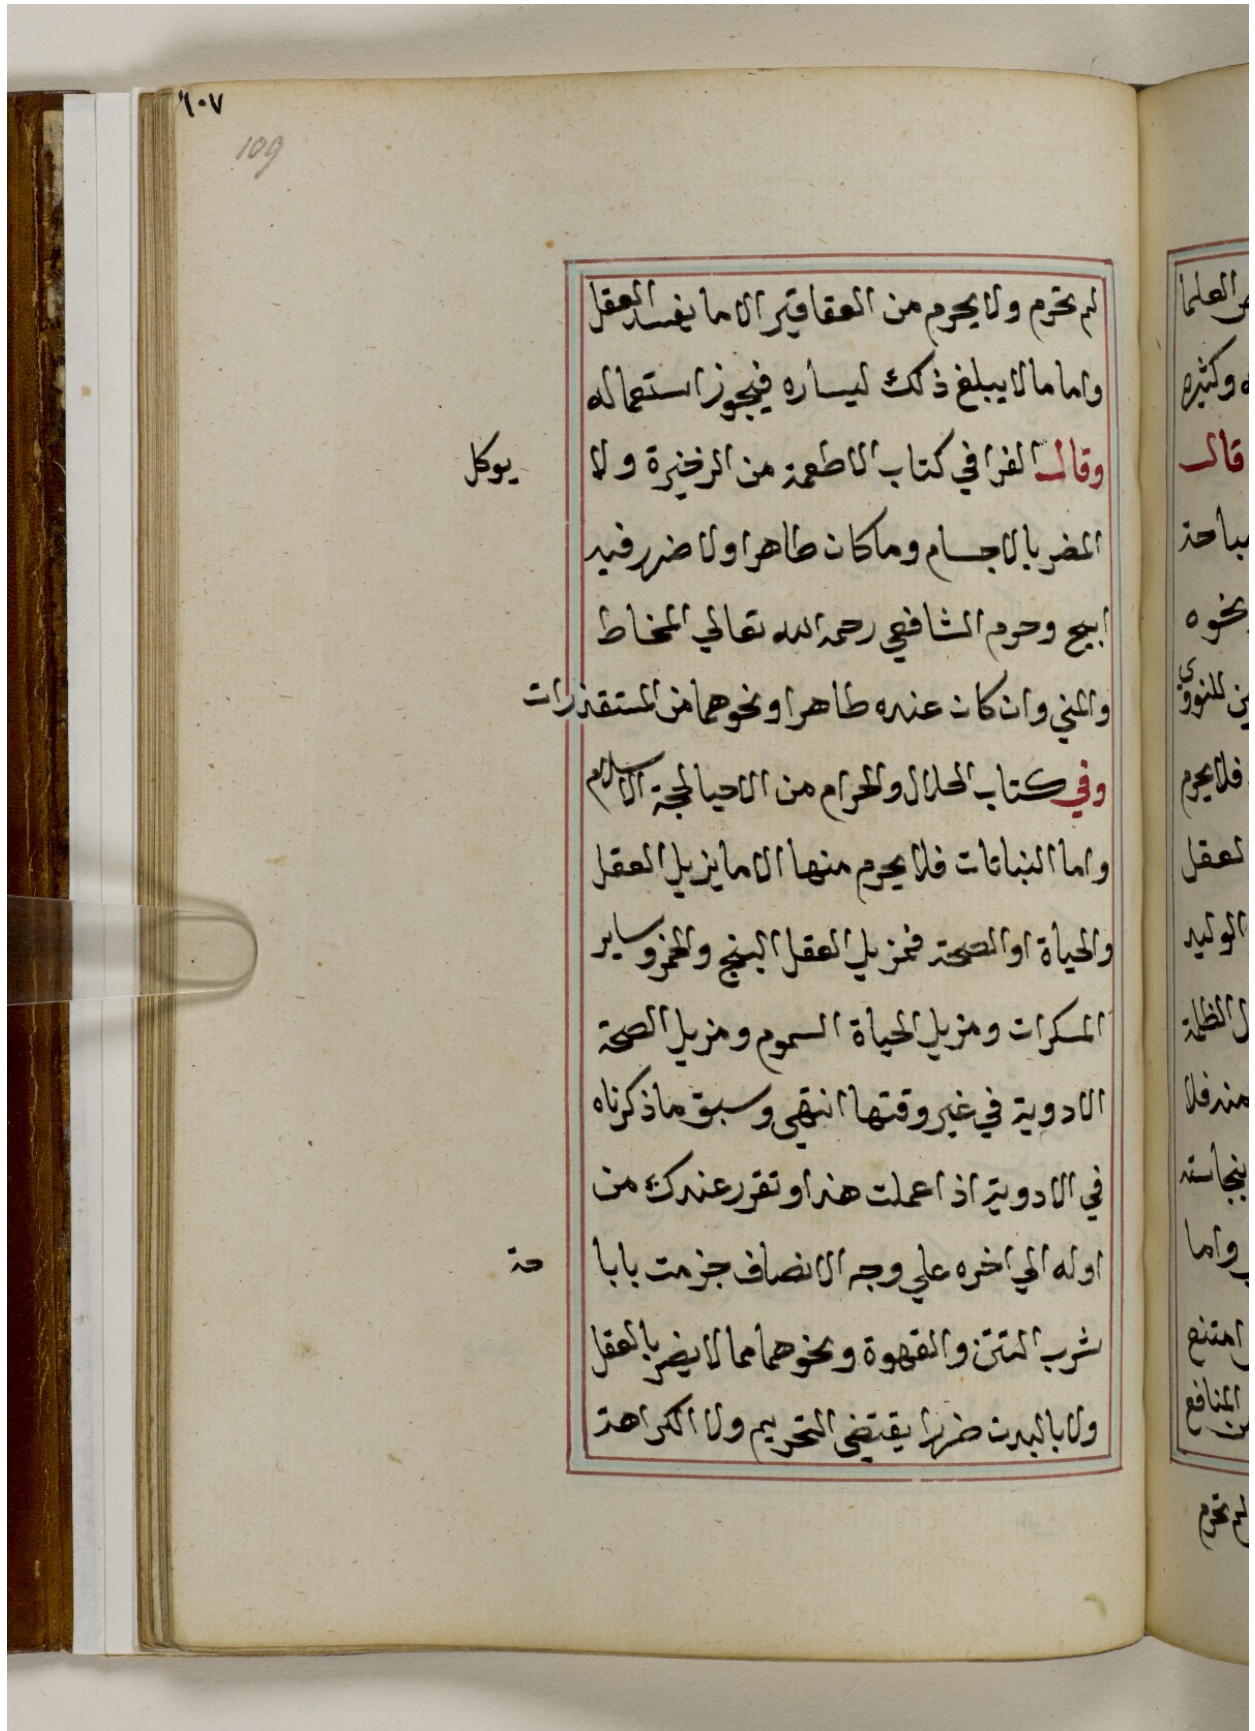 ١٠٧
109
لم تحرم ولا يحرم من العقاقير الا ما يفسد العقل
واما مالا يبلغ ذلك ليساره فيجوز استعماله
وقال القرافي كتاب الاطعمة من الذخيرة ولا يوكل
المضر بالاجسام وما كان طاهرا ولا ضرر فيه
ابيح وحرم الشافعي رحمه الله تعالي المخاط
والمني وان كان عنده طاهرا ونحوهما من المستقذرات
وفي كتاب الحلال والحرام من الاحيا لحجة الاسلام
واما النباتات فلا يحرم منها الا ما يزيل العقل
والحياة او الصحة فمزيل العقل البنج والخمر وساير
المسكرات ومزيل الحياة السموم ومزيل الصحة
الادوية في غير وقتها انتهي وسبق ما ذكرناه
في الادوية اذا عملت هذا وتقرر عندك من
اوله الي اخره علي وجه الانصاف جزمت بابا حة
شرب التتن والقهوة ونحوهما مما لا يضر بالعقل
ولا بالبدن ضررا يقتضي التحريم ولا الكراهة
العلما
وكثيره
قال
مباحة
نحوه
للنووي
فلا يحرم
العقل
الوليد
الظلمة
منه فلا
بنجاسته
واما
امتنع
المنافع
لم تحرم